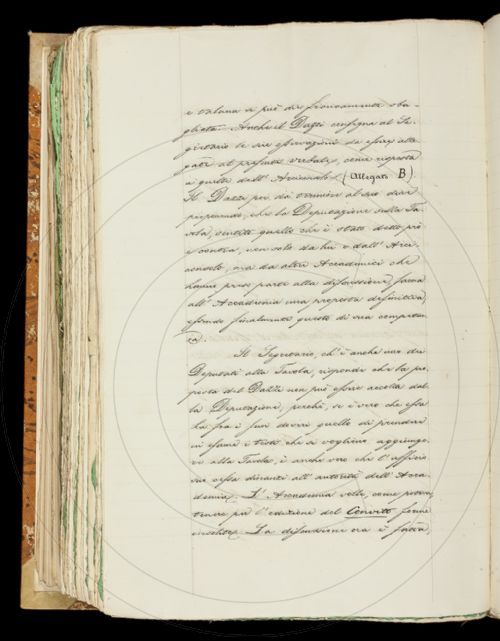 e taluna si può dir francamente sba-
gliata. Anche il Dazzi consegna al Se-
gretario le sue osservazioni da essere alle-
gate al presente verbale, come risposta
a quelle dell' Arcanati. (Allegato B)
Il Dazzi poi dà termine al suo dire
proponendo, che la Deputazione sulla Ta-
vola, sentito quello che è stato detto pro
e contra, non solo da lui e dall' Arci-
, ma da altri Accademici che
hanno preso parte alla discussione, faccia
all' Accademia una proposta definitiva,
essendo finalmente questo di sua competen-
za.
Il Segretario, ch' è anche uno dei
Deputati alla Tavola, risponde che la pro-
posta del Dazzi non può essere accolta dal-
la Deputazione; perchè, se è vero che essa
ha fra i suoi doveri quello di prendere
in esame i testi che si vogliono aggiunge-
re alla Tavola, è anche vero che l' officio
suo cessa dinanzi all' autorità dell' Acca-
demia. L' Accademia volle, come poteva,
trarre per l' edizione del Convito forme
. La discussione ora è fatta,